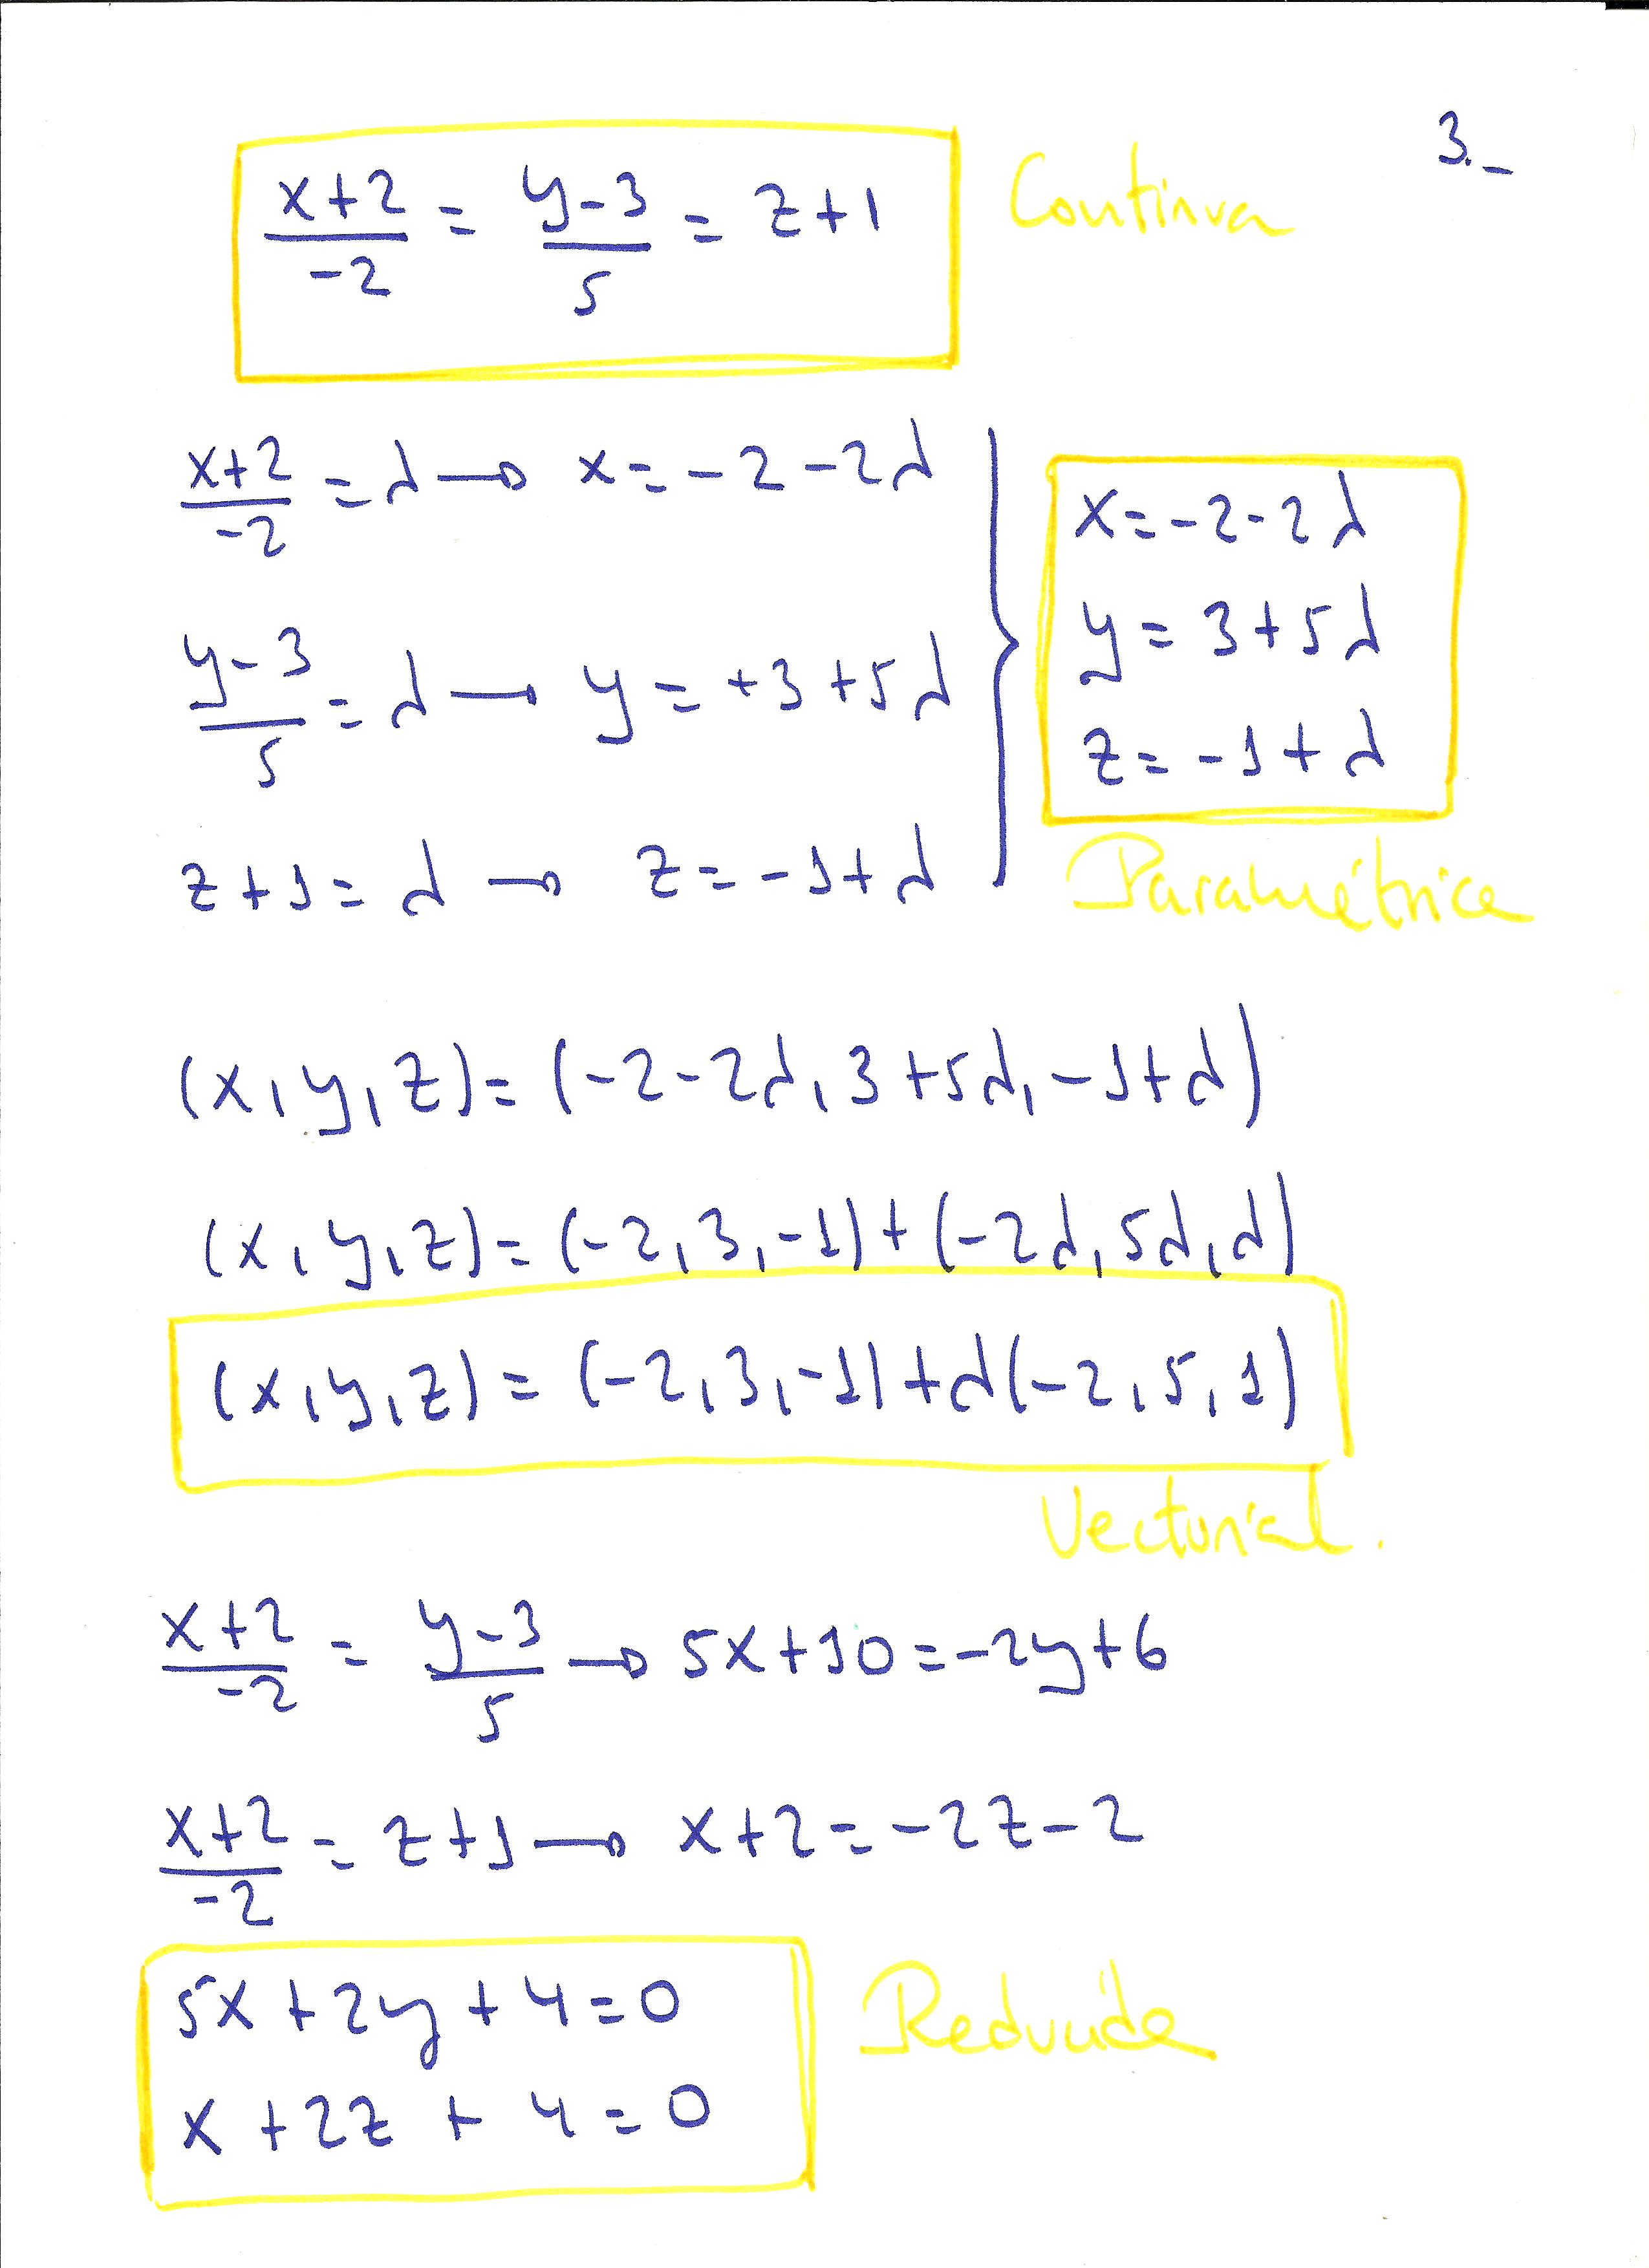 3.-
x+2/-2 = y-3/5 = z+1 Continua
x+2/-2 = λ → x = -2 - 2λ
y-3/5 = λ → y = +3 + 5λ
z+1 = λ → z = -1 + λ
x = -2 - 2λ
y = 3 + 5λ
z = -1 + λ
Paramétrica
(x, y, z) = (-2 - 2λ, 3 + 5λ, -1 + λ)
(x, y, z) = (-2, 3, -1) + (-2λ, 5λ, λ)
(x, y, z) = (-2, 3, -1) + λ(-2, 5, 1)
Vectorial.
x+2/-2 = y-3/5 → 5x + 10 = -2y + 6
x+2/-2 = z+1 → x + 2 = -2z - 2
5x + 2y + 4 = 0
x + 2z + 4 = 0
Reducida